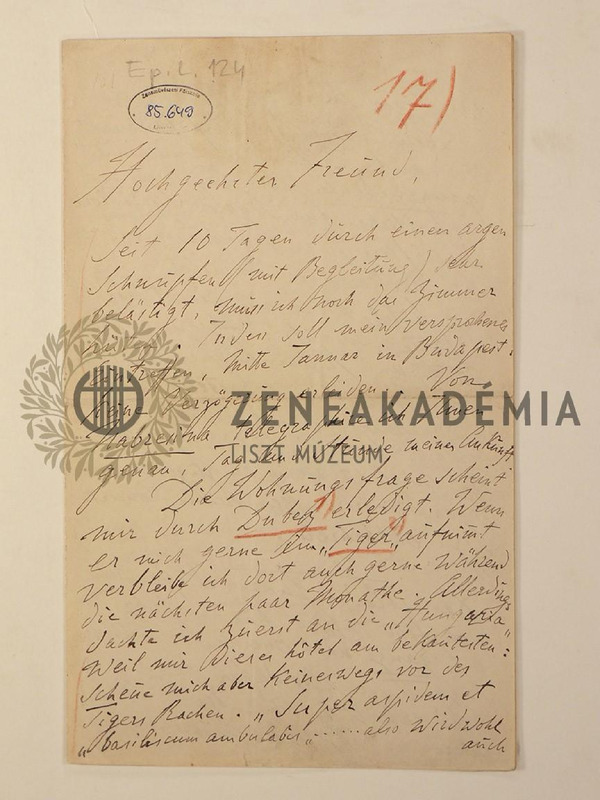 Ep. L. 124
ZENEMŰVÉSZETI FŐISKOLA
85.649
17)
Hochgeehrter Freund,
Seit 10 Tagen durch einen argen
Schnupfen (mit Begleitung) sehr
belästigt, muss ich noch das Zimmer
hüten. Indess soll mein versprochenes
Eintreffen, Mitte Januar in Budapest,
keine Verzögerung erleiden. Von
Nabresina telegraphire ich Ihnen
genau, Tag und Stunde meiner Ankunft.
Die Wohnungsfrage scheint
mir durch Dubez erledigt. Wenn
er mich gerne im „Tiger" aufnimt
verbleibe ich dort auch gerne während
die nächsten paar Monathe. Allerdings
dachte ich zuerst an die „Hungaria"
weil mir dieses hôtel am bekantesten:
scheue mich aber keineswegs vor des
Tigers Rachen. „Super aspidem et
„basiliscum ambulabis"......also wird wohl
auch
ZENEAKADÉMIA
LISZT MÚZEUM